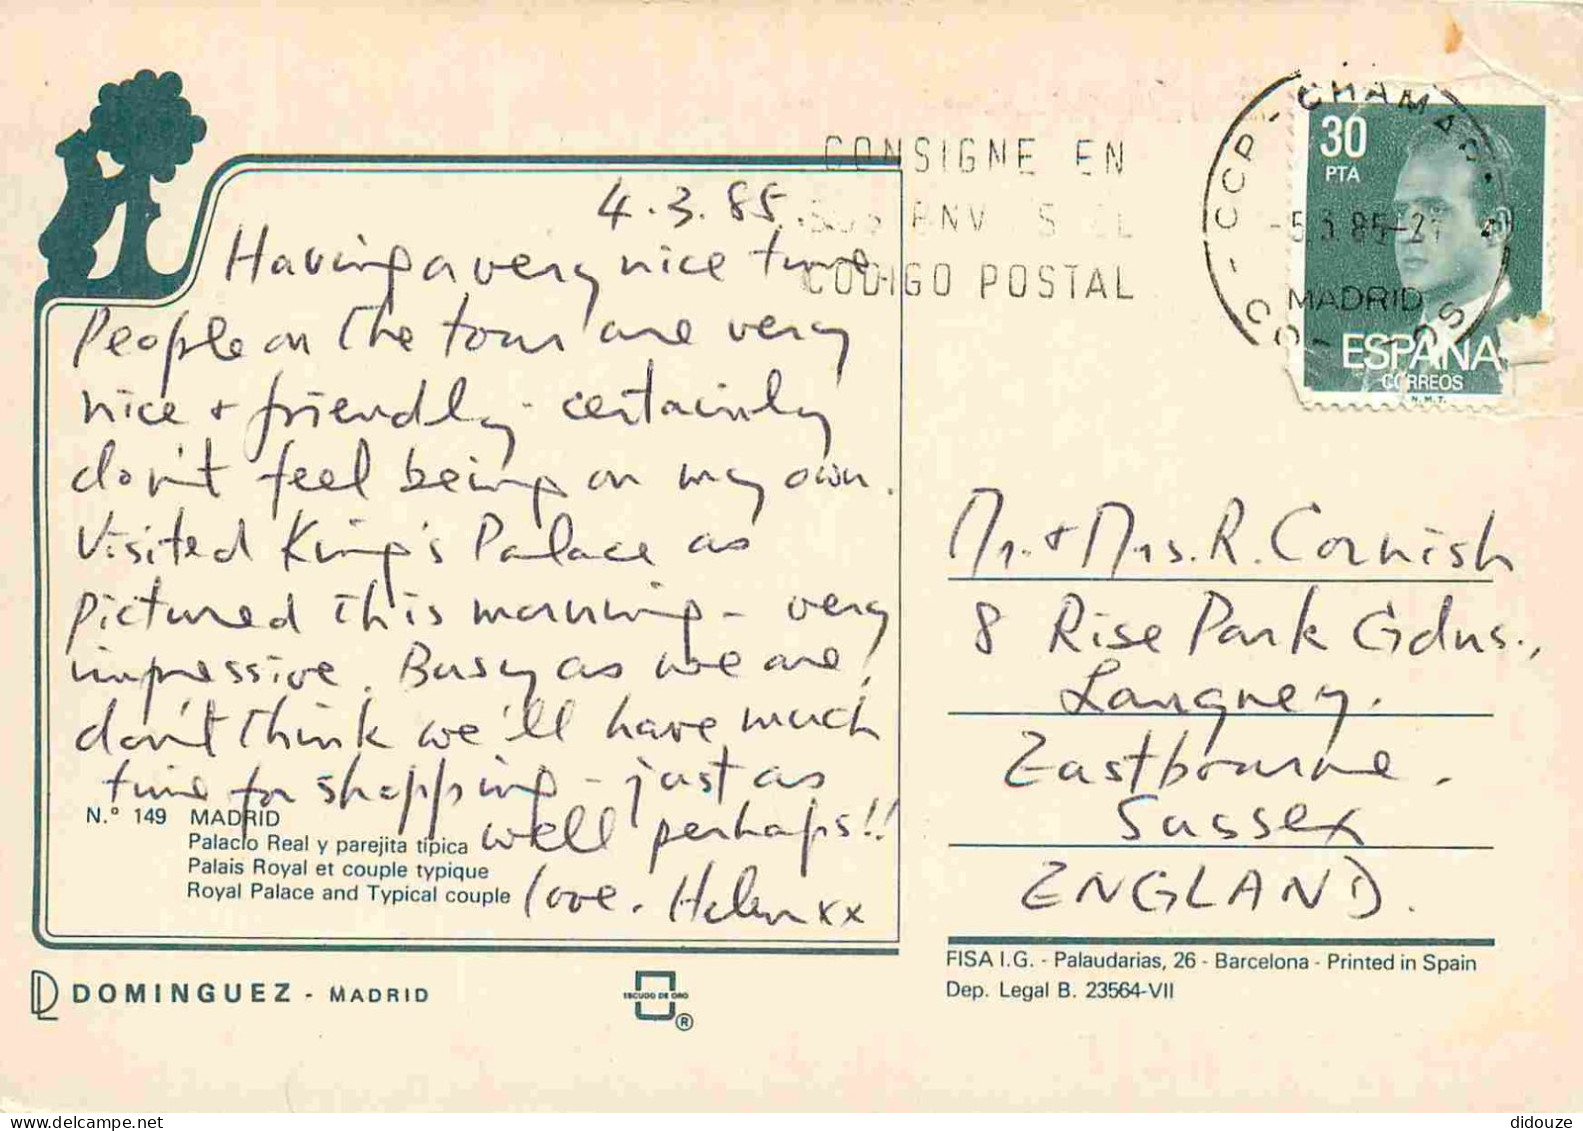 4.3.85.
Having a very nice time.
People on the tour are very
nice + friendly - certainly
don't feel being on my own.
Visited King's Palace as
pictured this morning - very
impressive. Busy as we are,
don't think we'll have much
time for shopping - just as
well perhaps!!
love. Helen xx
N.º 149 MADRID
Palacio Real y parejita típica
Palais Royal et couple typique
Royal Palace and Typical couple
DOMINGUEZ - MADRID
ESCUDO DE ORO
®
CONSIGNE EN
CODIGO POSTAL
MADRID
30
PTA
ESPAÑA
CORREOS
N.M.T.
Mr. + Mrs. R. Cornish
8 Rise Park Gdns.,
Langney.
Eastbourne.
Sussex
ENGLAND.
FISA I.G. - Palaudarias, 26 - Barcelona - Printed in Spain
Dep. Legal B. 23564-VII
didouze